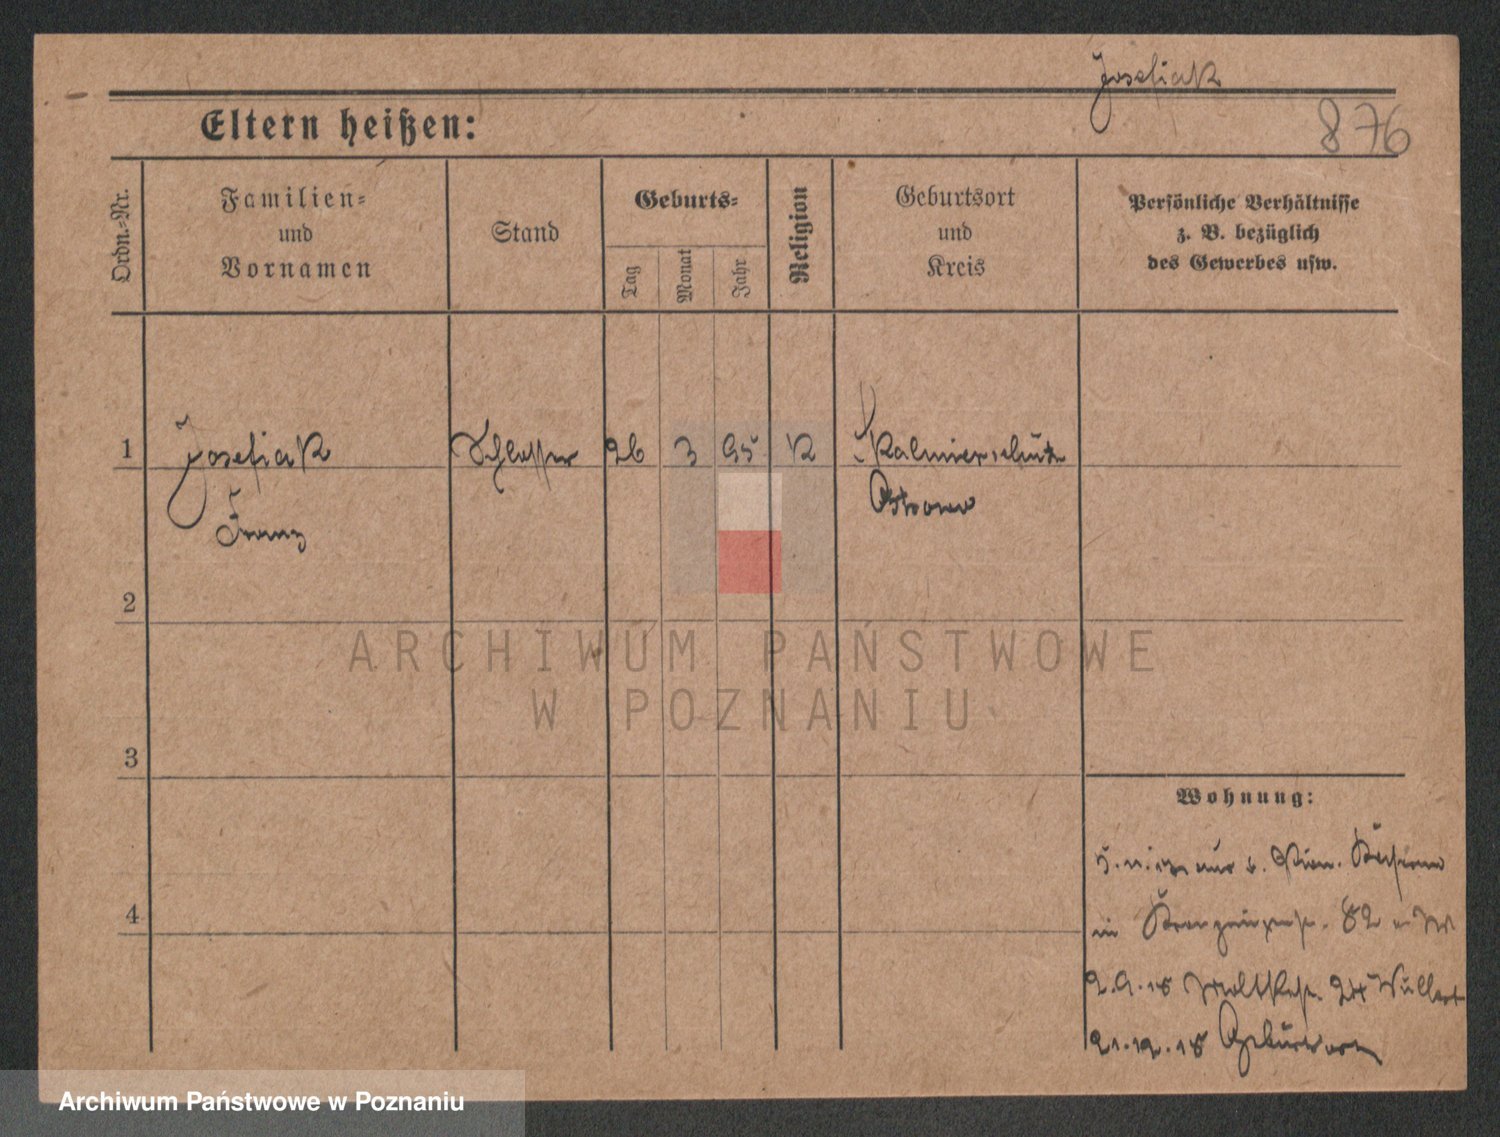 Josefiak
Eltern heißen:
876
Ordn.-Nr.
Familien-
und
Vornamen
Stand
Geburts-
Tag
Monat
Jahr
Religion
Geburtsort
und
Kreis
Persönliche Verhältnisse
z. B. bezüglich
des Gewerbes usw.
1
Josefiak
Franz
Schlosser
26
3
95
K
Skalmierschütz
Ostrowo
2
ARCHIWUM PAŃSTWOWE
W POZNANIU
3
Wohnung:
4
in 82
2.9.18 Moltkestr. 24
21.12.18 Geburtsort
Archiwum Państwowe w Poznaniu